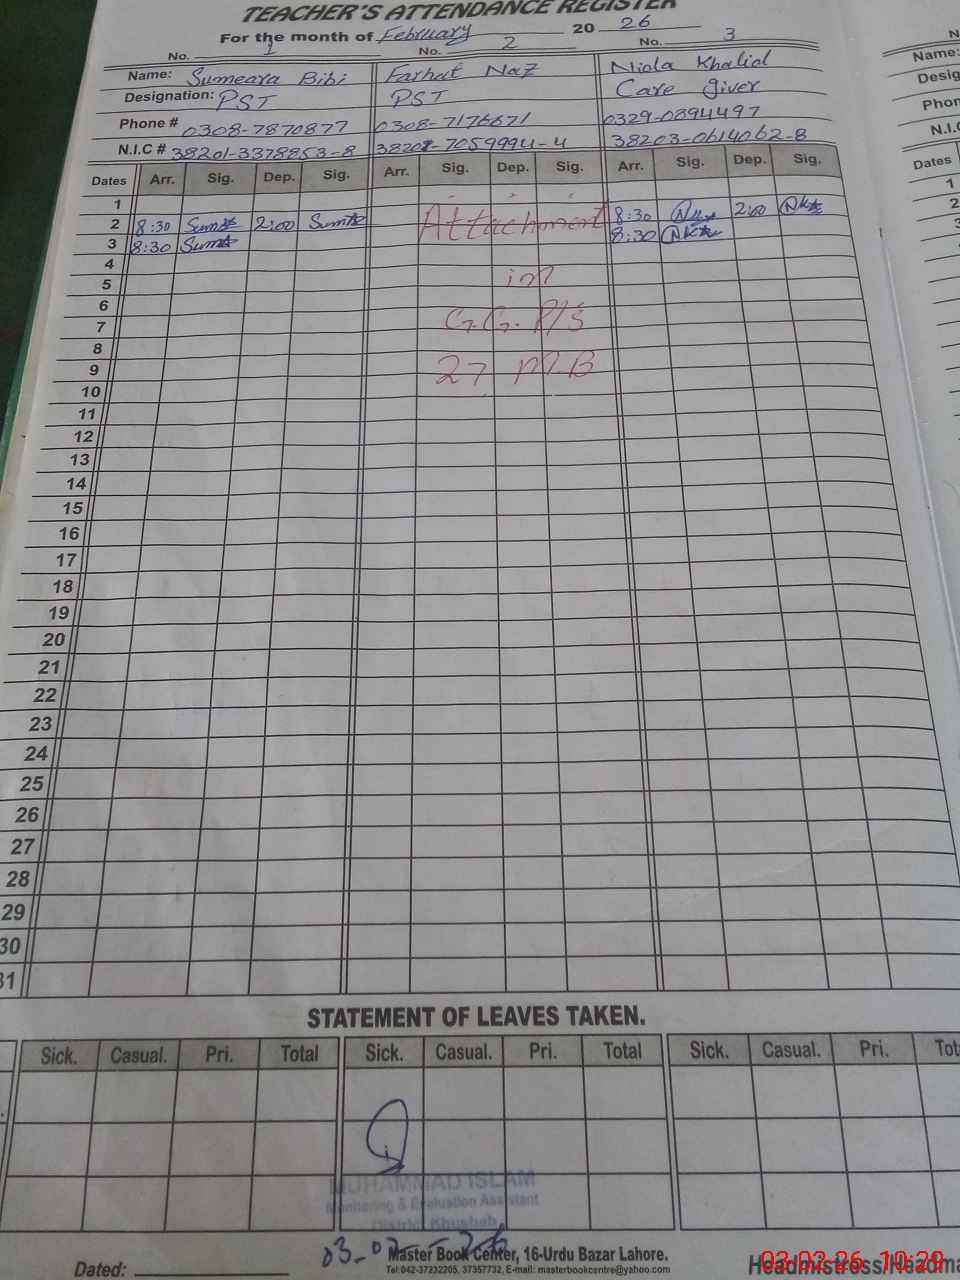 TEACHER'S ATTENDANCE REGISTER
For the month of February 20 26
No. 1 No. 2 No. 3
Name: Sumeara Bibi Farhat Naz Nida Khalid
Designation: PST PST Care giver
Phone # 0308-7870877 0308-7176671 0329-0894497
N.I.C # 38201-3378853-8 38201-7059994-4 38203-0614062-8
Dates Arr. Sig. Dep. Sig. Arr. Sig. Dep. Sig. Arr. Sig. Dep. Sig.
1
2 8:30 2:00 Attachment 8:30 2:00
3 8:30 8:30
4
5 in
6
7 G.G.P/S
8
9 27 MB
10
11
12
13
14
15
16
17
18
19
20
21
22
23
24
25
26
27
28
29
30
31
STATEMENT OF LEAVES TAKEN.
Sick. Casual. Pri. Total Sick. Casual. Pri. Total Sick. Casual. Pri. Tot
MUHAMMAD ISLAM
Monitoring & Evaluation Assistant
District Khushab
03-02-26
Master Book Center, 16-Urdu Bazar Lahore.
Tel:042-37232205, 37357732, E-mail: masterbookcentre@yahoo.com
Dated:
Headmistress/Headma
03.02.26 10:29
N
Name:
Desig
Phon
N.I.C
Dates
1
2
3